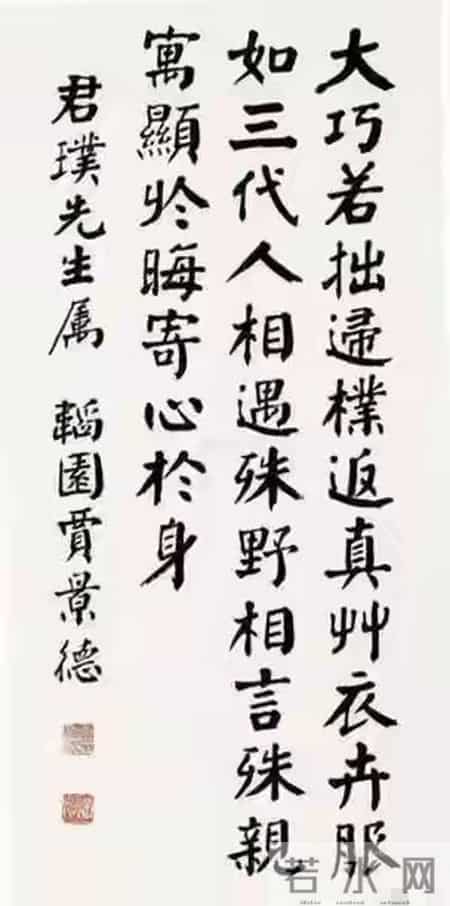 大巧若拙逯樸返真艸衣卉服
如三代人相遇殊野相言殊親
寓顯於晦寄心於身
君璞先生属 韜園賈景德
若水网